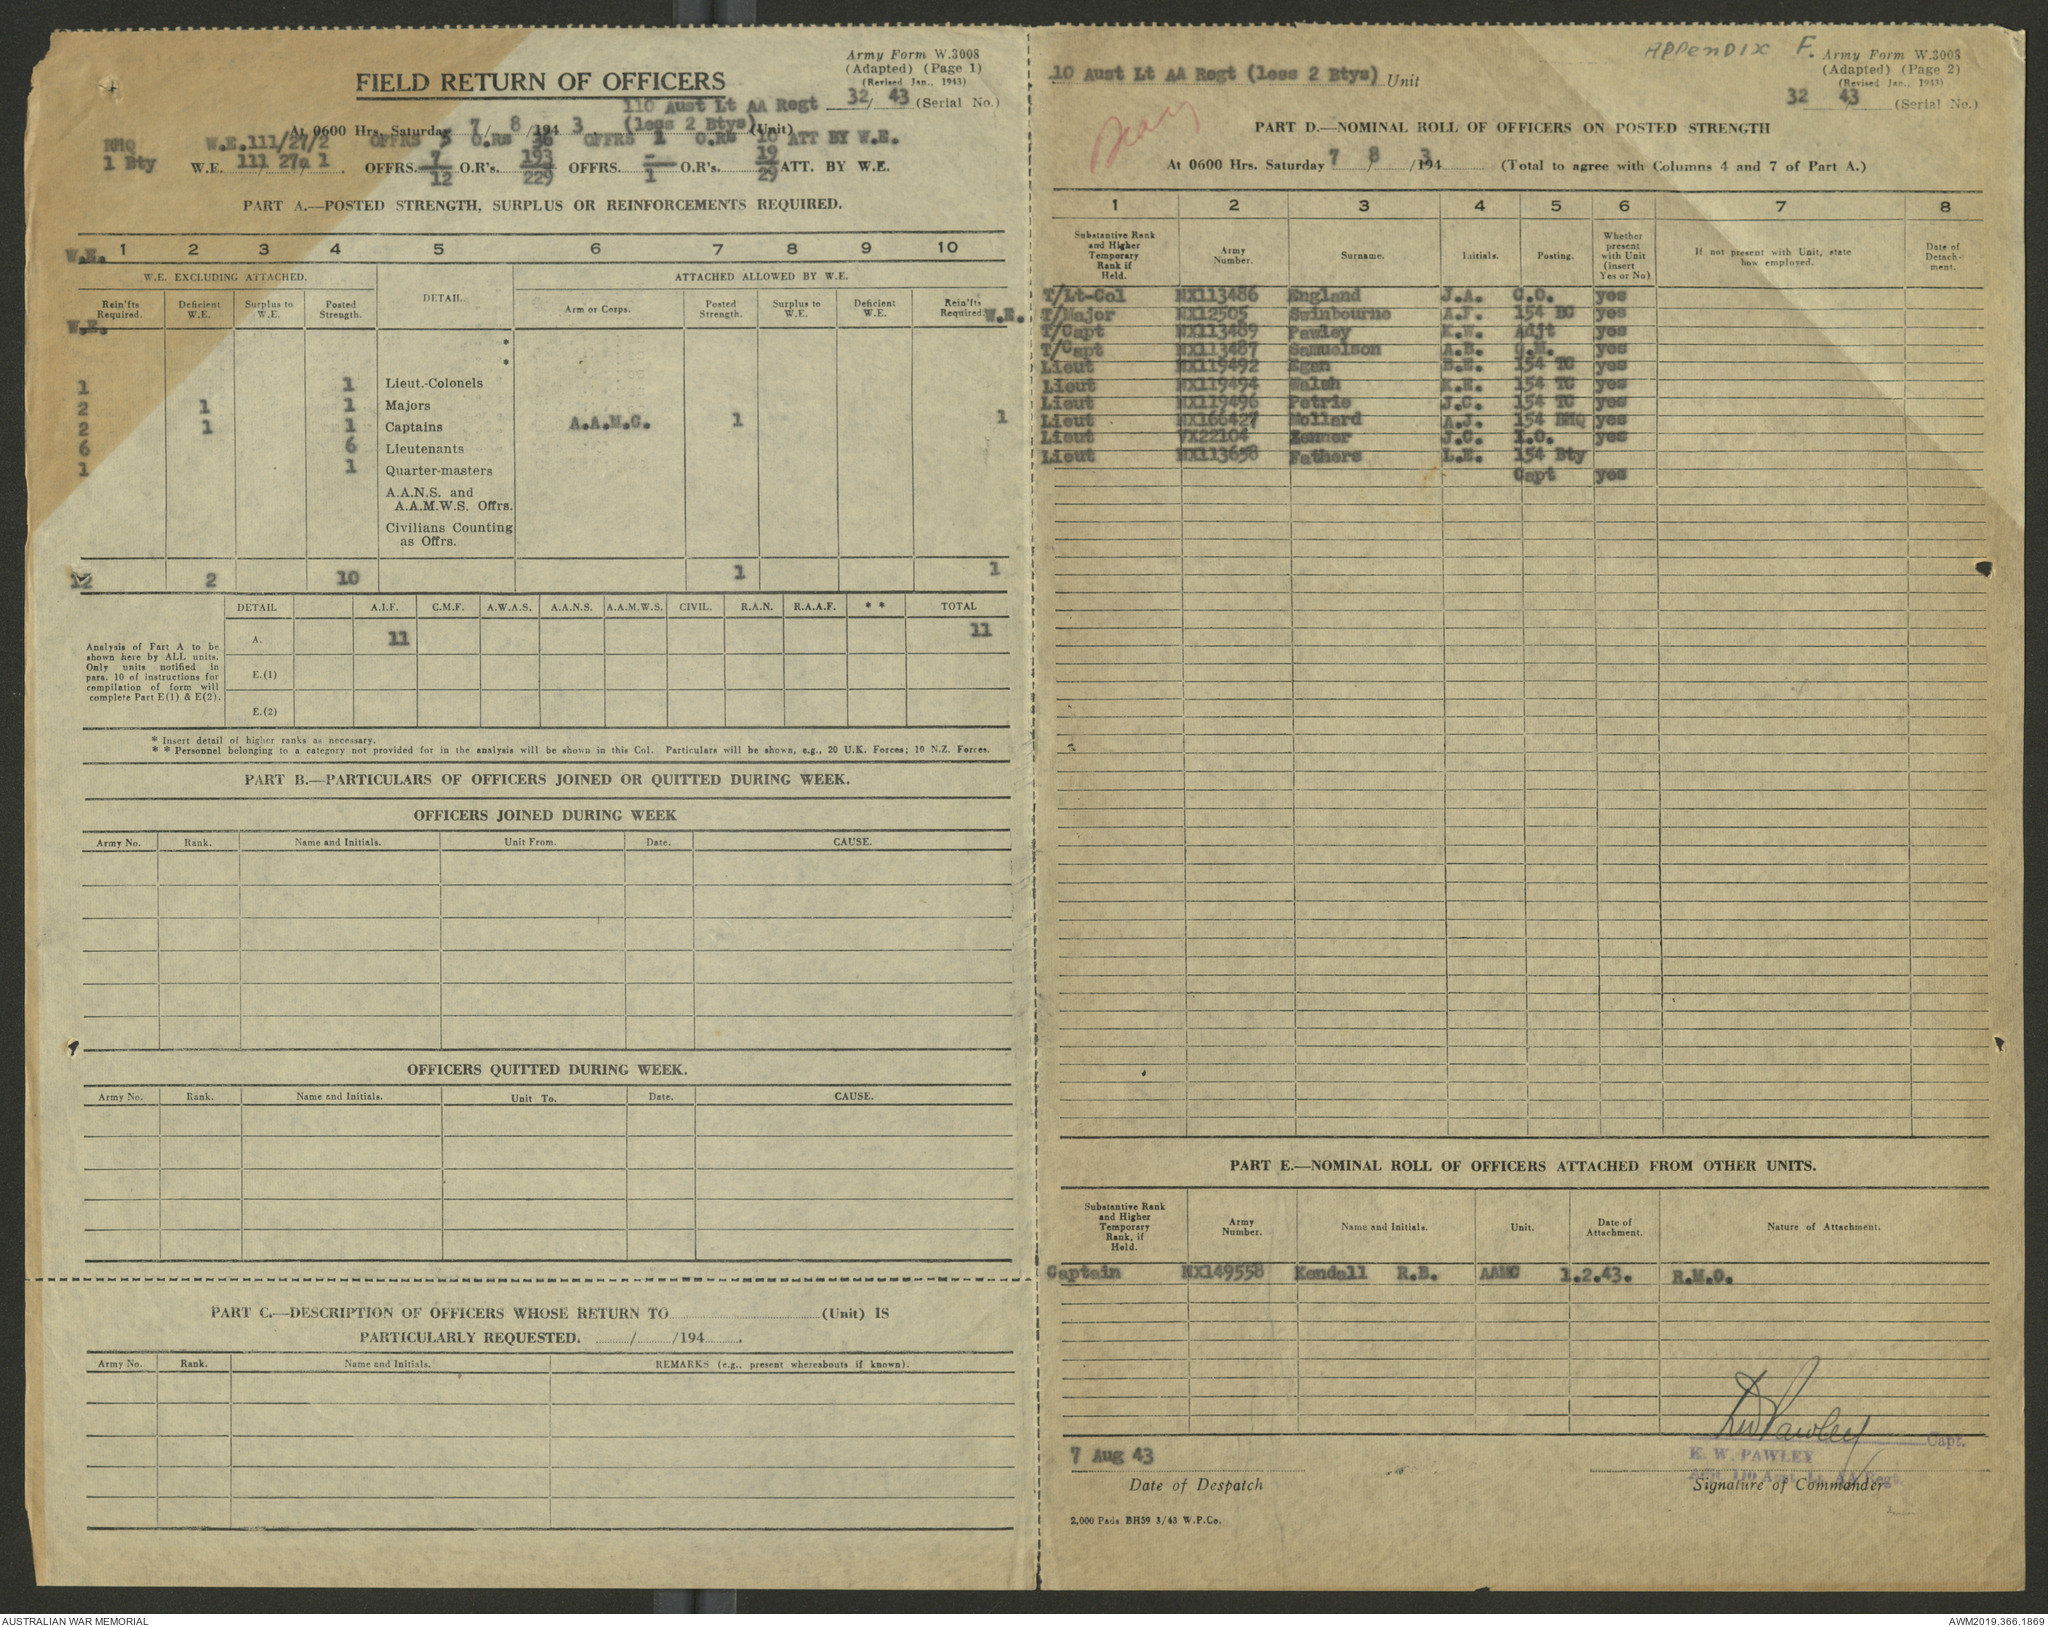 Army Form W.3008
(Adapted) (Page 1)
(Revised Jan., 1943)
FIELD RETURN OF OFFICERS
110 Aust Lt AA Regt 32/ 43 (Serial No.)
At 0600 Hrs. Saturday 7/ 8 /194 3 (less 2 Btys) (Unit)
RHQ W.E.111/27/2 OFFRS 5 O.RS 36 OFFRS 1 O.RS 10 ATT BY W.E.
1 Bty W.E. 111 27a 1. OFFRS. 7 O.R's. 193 OFFRS. - O.R's. 19 ATT. BY W.E.
12 229 1 29
PART A.—POSTED STRENGTH, SURPLUS OR REINFORCEMENTS REQUIRED.
W.E. 1 2 3 4 5 6 7 8 9 10
W.E. EXCLUDING ATTACHED. DETAIL. ATTACHED ALLOWED BY W.E.
Rein'fts Required. Deficient W.E. Surplus to W.E. Posted Strength. Arm or Corps. Posted Strength. Surplus to W.E. Deficient W.E. Rein'fts Required. W.E.
W.E.
*
*
1 1 Lieut.-Colonels
2 1 1 Majors
2 1 1 Captains A.A.M.C. 1 1
6 6 Lieutenants
1 1 Quarter-masters
A.A.N.S. and
A.A.M.W.S. Offrs.
Civilians Counting
as Offrs.
12 2 10 1 1
DETAIL A.I.F. C.M.F. A.W.A.S. A.A.N.S. A.A.M.W.S. CIVIL. R.A.N. R.A.A.F. * * TOTAL
A. 11 11
Analysis of Part A to be
shown here by ALL units.
Only units notified in
para. 10 of instructions for
compilation of form will
complete Part E(1) & E(2).
E.(1)
E.(2)
* Insert detail of higher ranks as necessary.
* * Personnel belonging to a category not provided for in the analysis will be shown in this Col. Particulars will be shown, e.g., 20 U.K. Forces; 10 N.Z. Forces.
PART B.—PARTICULARS OF OFFICERS JOINED OR QUITTED DURING WEEK.
OFFICERS JOINED DURING WEEK
Army No. Rank. Name and Initials. Unit From. Date. CAUSE.
OFFICERS QUITTED DURING WEEK.
Army No. Rank. Name and Initials. Unit To. Date. CAUSE.
PART C.—DESCRIPTION OF OFFICERS WHOSE RETURN TO (Unit) IS
PARTICULARLY REQUESTED. / /194 .
Army No. Rank. Name and Initials. REMARKS (e.g., present whereabouts if known).
APPENDIX F.
Army Form W.3008
(Adapted) (Page 2)
(Revised Jan., 1943)
10 Aust Lt AA Regt (less 2 Btys) Unit
32 43 (Serial No.)
Diary
PART D.—NOMINAL ROLL OF OFFICERS ON POSTED STRENGTH
At 0600 Hrs. Saturday 7 / 8 /194 3 (Total to agree with Columns 4 and 7 of Part A.)
1 2 3 4 5 6 7 8
Substantive Rank and Higher Temporary Rank if Held. Army Number. Surname. Initials. Posting. Whether present with Unit (insert Yes or No) If not present with Unit, state how employed. Date of Detach-ment.
T/Lt-Col NX113486 England J.A. C.O. yes
T/Major NX12505 Swinbourne A.F. 154 BC yes
T/Capt NX113489 Pawley K.W. Adjt yes
T/Capt NX113487 Samuelson A.B. Q.M. yes
Lieut NX119492 Egan B.E. 154 TC yes
Lieut NX119494 Walsh K.E. 154 TC yes
Lieut NX119496 Petrie J.C. 154 TC yes
Lieut NX166427 Mollard A.J. 154 BHQ yes
Lieut VX22104 J.C. I.O. yes
Lieut NX113658 Fathers L.E. 154 Bty
Capt yes
PART E.—NOMINAL ROLL OF OFFICERS ATTACHED FROM OTHER UNITS.
Substantive Rank and Higher Temporary Rank, if Held. Army Number. Name and Initials. Unit. Date of Attachment. Nature of Attachment.
Captain NX149558 Kendall R.B. AAMC 1.2.43. R.M.O.
KW Pawley
Capt.
K. W. PAWLEY
Adjt. 110 Aust. Lt. AA Regt.
7 Aug 43
Date of Despatch Signature of Commander
2,000 Pads BH59 3/43 W.P.Co.
AUSTRALIAN WAR MEMORIAL AWM2019.366.1869